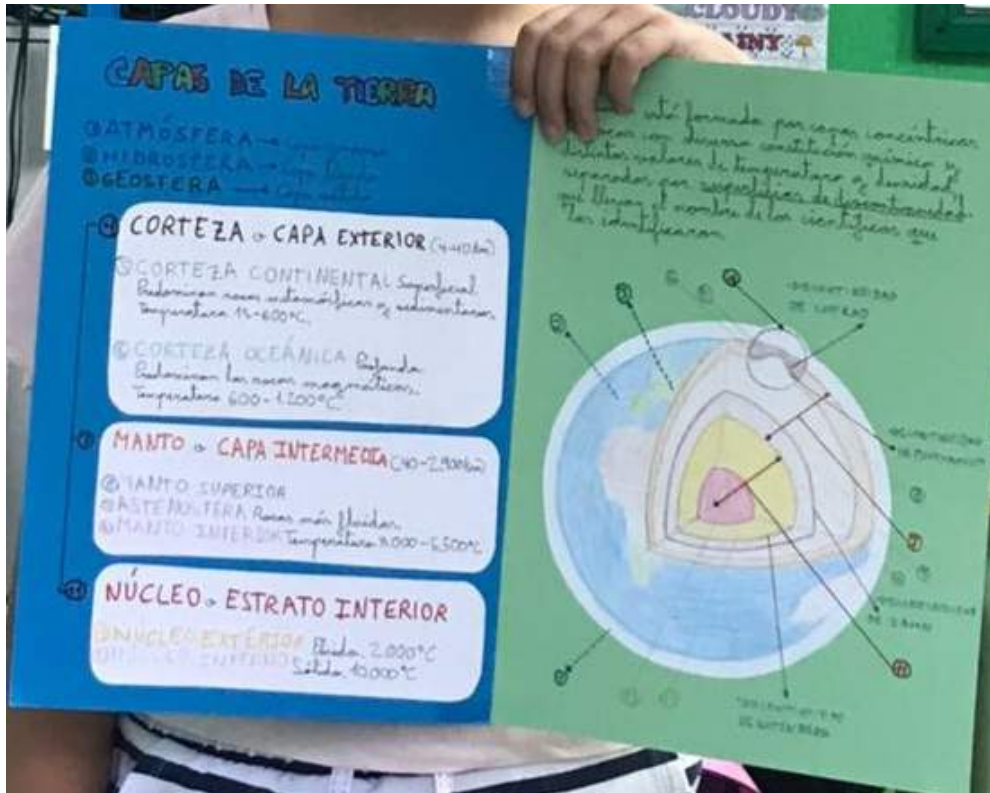 CLOUDY
RAINY
CAPAS DE LA TIERRA
ATMÓSFERA → Capa gaseosa
HIDROSFERA → Capa líquida
GEOSFERA → Capa sólida
CORTEZA o CAPA EXTERIOR (4-40km)
CORTEZA CONTINENTAL Superficial
Predominan rocas metamórficas y sedimentarias
Temperatura 15-600°C.
CORTEZA OCEÁNICA Profunda
Predominan las rocas magmáticas.
Temperatura 600-1.200°C
MANTO o CAPA INTERMEDIA (40-2.900km)
MANTO SUPERIOR
ASTENOSFERA Rocas más fluidas
MANTO INFERIOR Temperatura
NÚCLEO o ESTRATO INTERIOR
NÚCLEO EXTERIOR Fluido 2.000°C
NÚCLEO INTERNO Sólido 10.000°C
está formada por capas concéntricas
con diversa constitución química y
distintos valores de temperatura y densidad,
separadas por superficies de discontinuidad
que llevan el nombre de los científicos que
las identificaron.
DISCONTINUIDAD
DE CONRAD
DISCONTINUIDAD
DE MOHOROVICIC
DISCONTINUIDAD
DE
DISCONTINUIDAD
DE GUTENBERG